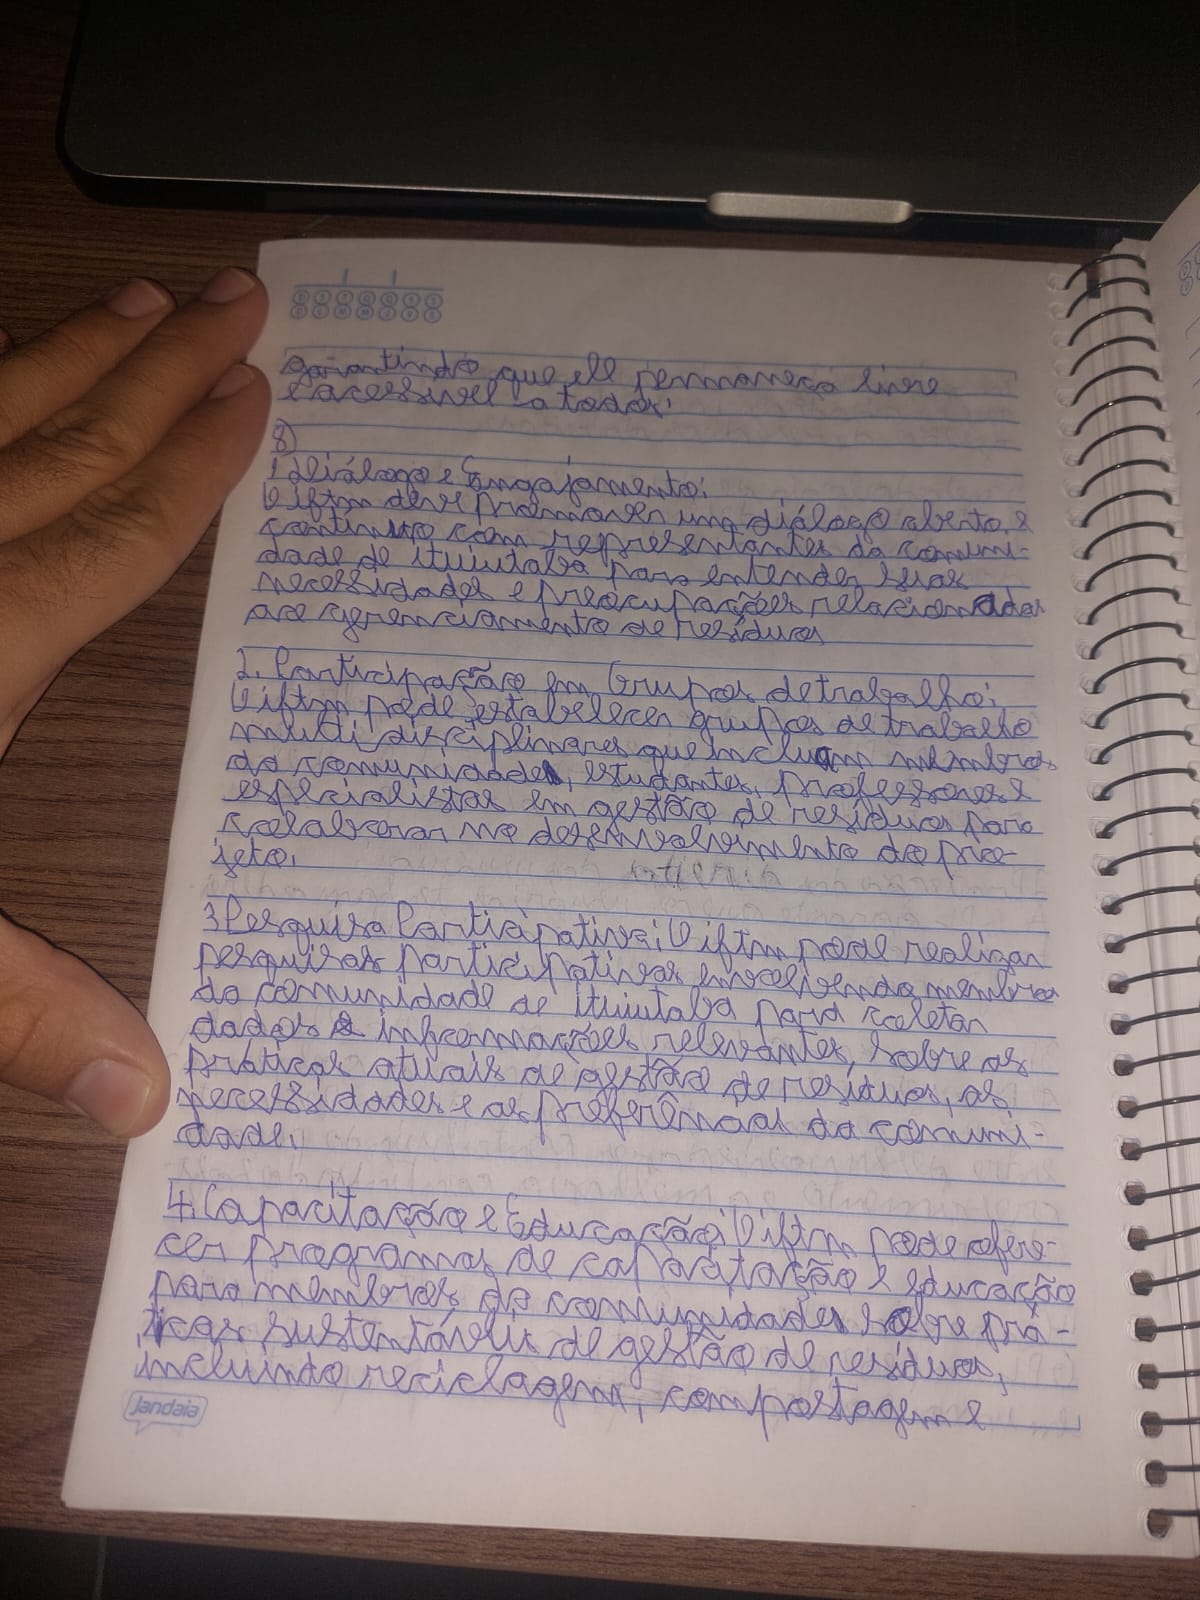 garantindo que ele permaneça livre
e acessível a todos.
8)
1 Diálogo e Engajamento:
O iftm deve promover um diálogo aberto e
contínuo com representantes da comuni-
dade de ituiutaba para entender suas
necessidades e preocupações relacionadas
ao gerenciamento de resíduos
2. Participação em Grupos de trabalho:
O iftm pode estabelecer grupos de trabalho
multidisciplinares que incluam membros
da comunidade, estudantes, professores e
especialistas em gestão de resíduos para
colaborar no desenvolvimento do pro-
jeto.
3 Pesquisa Participativa: O iftm pode realizar
pesquisas participativas envolvendo membros
da comunidade de ituiutaba para coletar
dados e informações relevantes, sobre as
práticas atuais de gestão de resíduos, as
necessidades e as preferências da comuni-
dade.
4. Capacitação e Educação: O iftm pode ofere-
cer programas de capacitação e educação
para membros da comunidade sobre prá-
ticas sustentáveis de gestão de resíduos,
incluindo reciclagem, compostagem e
Jandaia